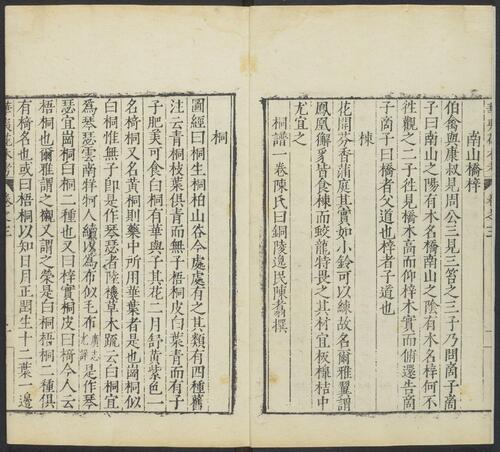 南山橋梓
伯禽與康叔見周公三見三笞之二子乃問商子商
子曰南山之陽有木名橋南山之陰有木名梓何不
徃觀之二子徃見橋木高而仰梓木實而俯還告商
子商子曰橋者父道也梓者子道也
楝
花開芬香蒲庭其實如小鈴可以練故名爾雅翼謂
鳳凰獬豸皆食楝而蛟龍特畏之其材宜板槅桔中
尤宜之
桐譜一卷陳氏曰銅陵逸民陳翥撰
桐
圖經曰桐生桐柏山谷今處處有之其類有四種舊
注云青桐枝葉俱青而無子梧桐皮白葉青而有子
子肥美可食白桐有華與子其花二月舒黃紫色一
名椅桐又名黃桐則藥中所用華葉者是也崗桐似
白桐惟無子即是作琴瑟者陸機草木疏云白桐宜
為琴瑟雲南牂牁人績以為布似毛布是作琴
瑟宜崗桐曰白桐二種也又曰梓實桐皮曰椅今人云
梧桐也爾雅謂之櫬又謂之榮是白桐梧桐二種俱
有椅名也或曰梧桐以知日月正閏生十二葉一邊